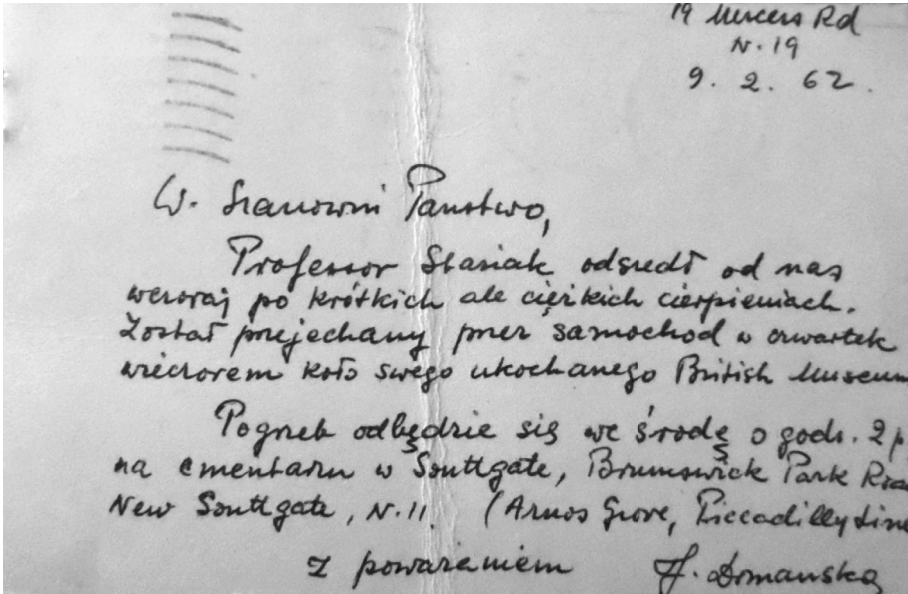 19 Mercers Rd
N.19
9. 2. 62.
W. Szanowni Państwo,
Professor Stasiak odszedł od nas
wczoraj po krótkich ale ciężkich cierpieniach.
Został przejechany przez samochód w czwartek
wieczorem koło swego ukochanego British Museum
Pogrzeb odbędzie się we środę o godz. 2 p
na cmentarzu w Southgate, Brunswick Park Roa
New Southgate, N.11. (Arnos Grove, Piccadilly Line
Z poważaniem J. Domańska